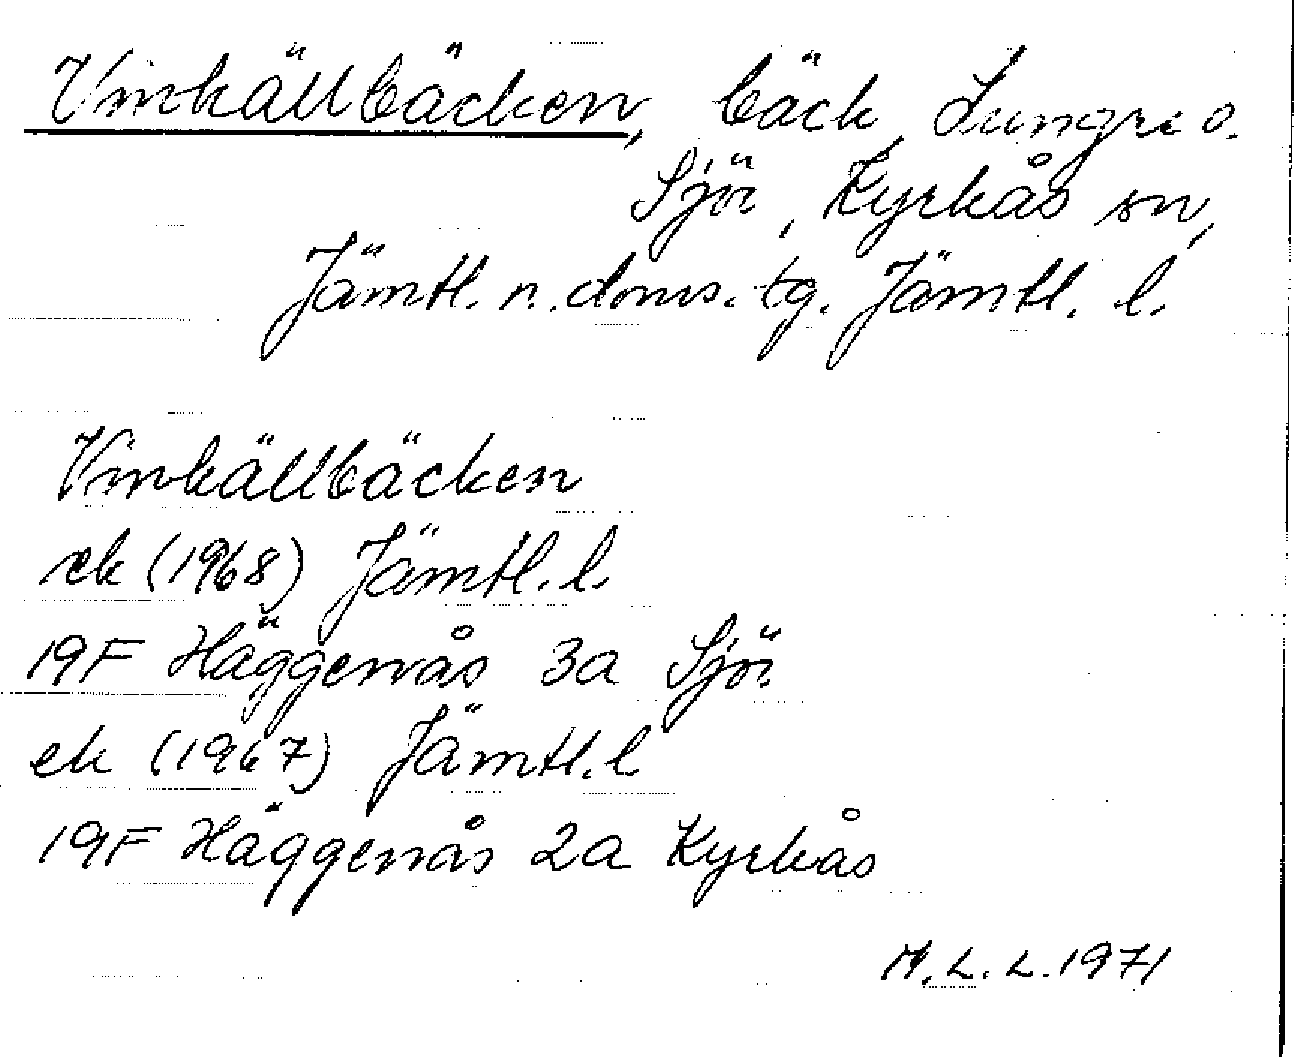 Vinkällbäcken, bäck, Lungre o.
Sjör, Kyrkås sn,
Jämtl. n. doms. tg. Jämtl. l.
Vinkällbäcken
ek (1968) Jämtl. l.
19F Häggenås 3a Sjör
ek (1967) Jämtl. l
19F Häggenås 2a Kyrkås
M. L. L. 1971